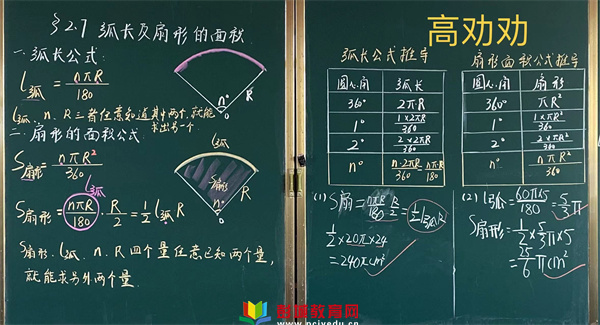 §2.7 弧长及扇形的面积
一.弧长公式:
l弧 = nπR/180
l弧、n、R三者任意知道其中两个,就能
求出另一个.
二.扇形的面积公式:
S扇形 = nπR²/360
l弧
S扇形 = nπR/180 · R/2 = 1/2 l弧R
S扇形、l弧、n、R四个量任意已知两个量,
就能求另外两个量.
R
n°
O
l弧
S扇形
R
n°
O
高劝劝
弧长公式推导
圆心角 弧长
360° 2πR
1° 1×2πR/360
2° 2×2πR/360
n° n·2πR/360 = nπR/180
扇形面积公式推导
圆心角 扇形
360° πR²
1° 1×πR²/360
2° 2×πR²/360
n° nπR²/360
(1) S扇 = nπR/180 · R/2 = 1/2 l弧R
1/2 × 20π × 24
= 240π cm²
(2) l弧 = 60π×5/180 = 5/3 π
S扇形 = 1/2 × 5/3 π × 5
= 25/6 π cm²